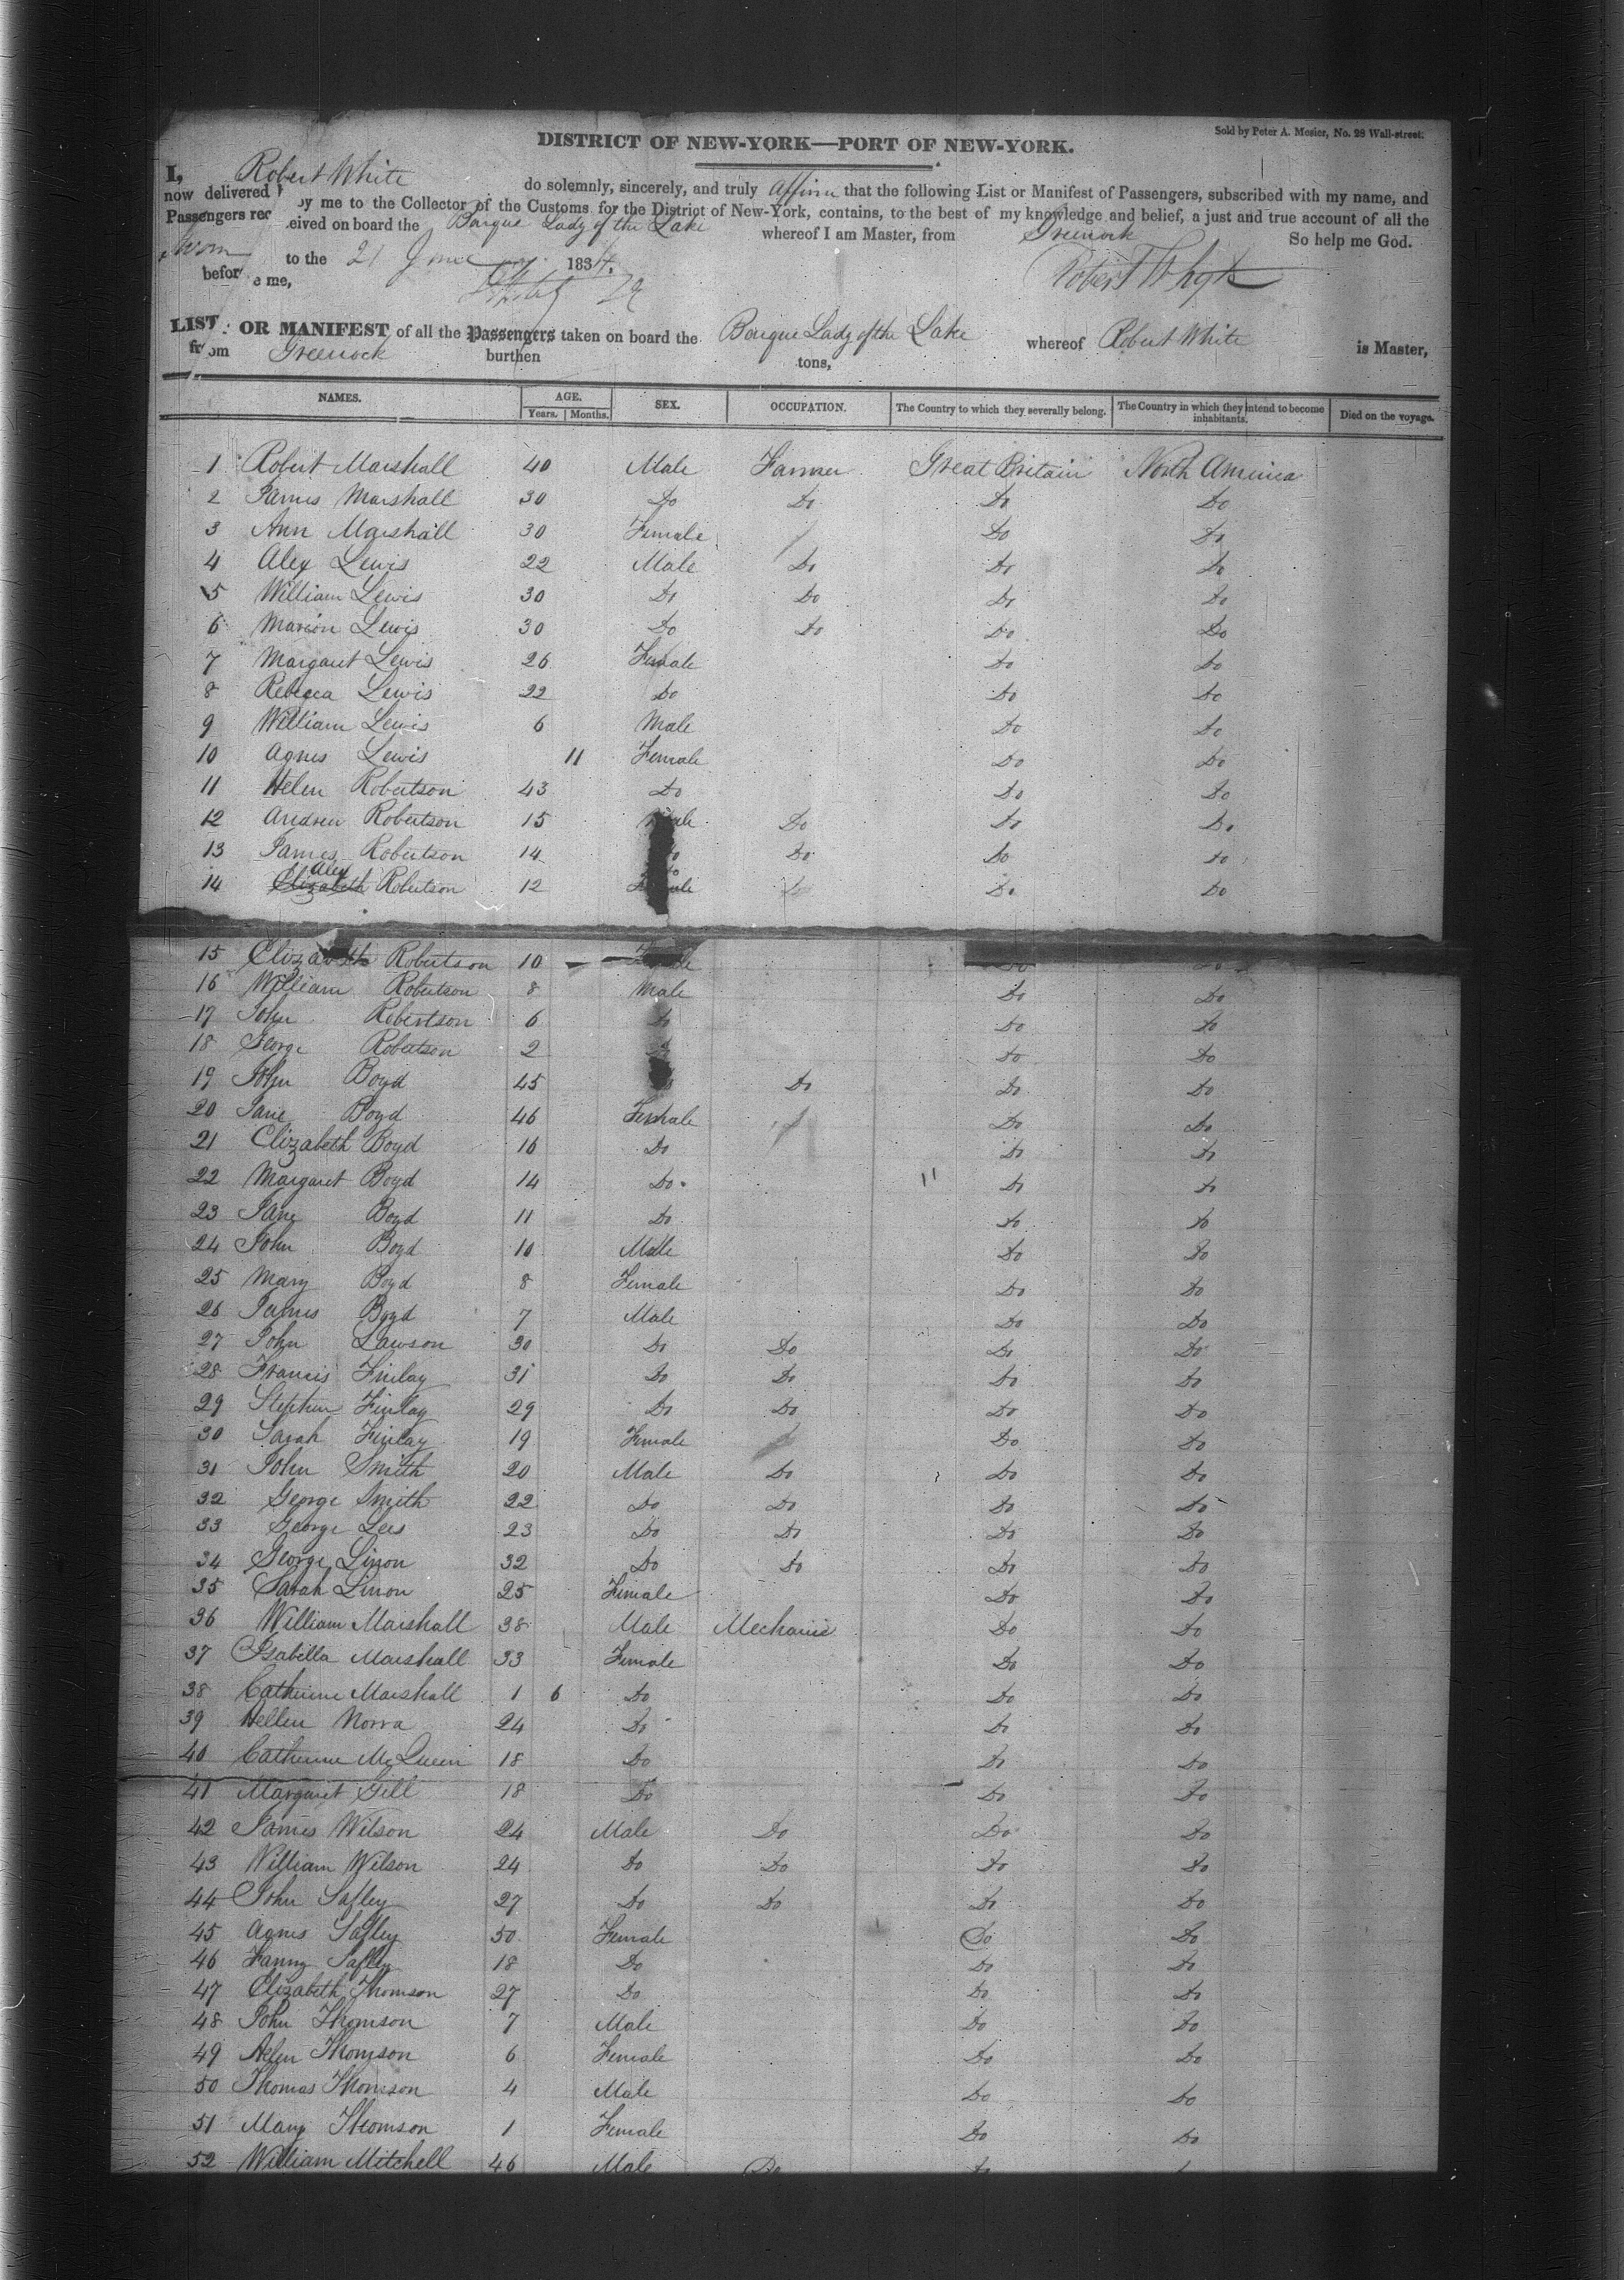 Sold by Peter A. Mesier, No. 28 Wall-street.
DISTRICT OF NEW-YORK—PORT OF NEW-YORK.
I, Robert White do solemnly, sincerely, and truly affirm that the following List or Manifest of Passengers, subscribed with my name, and
now delivered by me to the Collector of the Customs for the District of New-York, contains, to the best of my knowledge and belief, a just and true account of all the
Passengers received on board the Barque Lady of the Lake whereof I am Master, from Greenock So help me God.
Sworn to the 21 June 1834. Robert Whyte
before me,
LIST OR MANIFEST of all the Passengers taken on board the Barque Lady of the Lake whereof Robert White is Master,
from Greenock burthen tons,
NAMES. AGE. SEX. OCCUPATION. The Country to which they severally belong. The Country in which they intend to become inhabitants. Died on the voyage.
Years. Months.
1 Robert Marshall 40 Male Farmer Great Britain North America
2 James Marshall 30 Do Do Do Do
3 Ann Marshall 30 Female Do Do
4 Alex Lewis 22 Male Do Do Do
5 William Lewis 30 Do Do Do Do
6 Marion Lewis 30 Do Do Do Do
7 Margaret Lewis 26 Female Do Do
8 Rebecca Lewis 22 Do Do Do
9 William Lewis 6 Male Do Do
10 Agnes Lewis 11 Female Do Do
11 Helen Robertson 43 Do Do Do
12 Andrew Robertson 15 Male Do Do Do
13 James Robertson 14 Do Do Do Do
14 Elizabeth Alex Robertson 12 Do Do Do
15 Elizabeth Robertson 10 Female Do Do
16 William Robertson 8 Male Do Do
17 John Robertson 6 Do Do Do
18 George Robertson 2 Do Do
19 John Boyd 45 Do Do Do
20 Jane Boyd 46 Female Do Do
21 Elizabeth Boyd 16 Do Do Do
22 Margaret Boyd 14 Do 11 Do Do
23 Jane Boyd 11 Do Do Do
24 John Boyd 10 Male Do Do
25 Mary Boyd 8 Female Do Do
26 James Boyd 7 Male Do Do
27 John Lawson 30 Do Do Do Do
28 Francis Finlay 31 Do Do Do Do
29 Stephen Finlay 29 Do Do Do Do
30 Sarah Finlay 19 Female Do Do
31 John Smith 20 Male Do Do Do
32 George Smith 22 Do Do Do Do
33 George Lees 23 Do Do Do Do
34 George Linon 32 Do Do Do Do
35 Sarah Linon 25 Female Do Do
36 William Marshall 38 Male Mechanic Do Do
37 Isabella Marshall 33 Female Do Do
38 Catherine Marshall 1 6 Do Do Do
39 Hellen Norra 24 Do Do Do
40 Catherine McQueen 18 Do Do Do
41 Margaret Gill 18 Do Do Do
42 James Wilson 24 Male Do Do Do
43 William Wilson 24 Do Do Do Do
44 John Safley 27 Do Do Do Do
45 Agnes Safley 50 Female Do Do
46 Fanny Safley 18 Do Do Do
47 Elizabeth Thomson 27 Do Do Do
48 John Thomson 7 Male Do Do
49 Helen Thomson 6 Female Do Do
50 Thomas Thomson 4 Male Do Do
51 Mary Thomson 1 Female Do Do
52 William Mitchell 46 Male Do Do